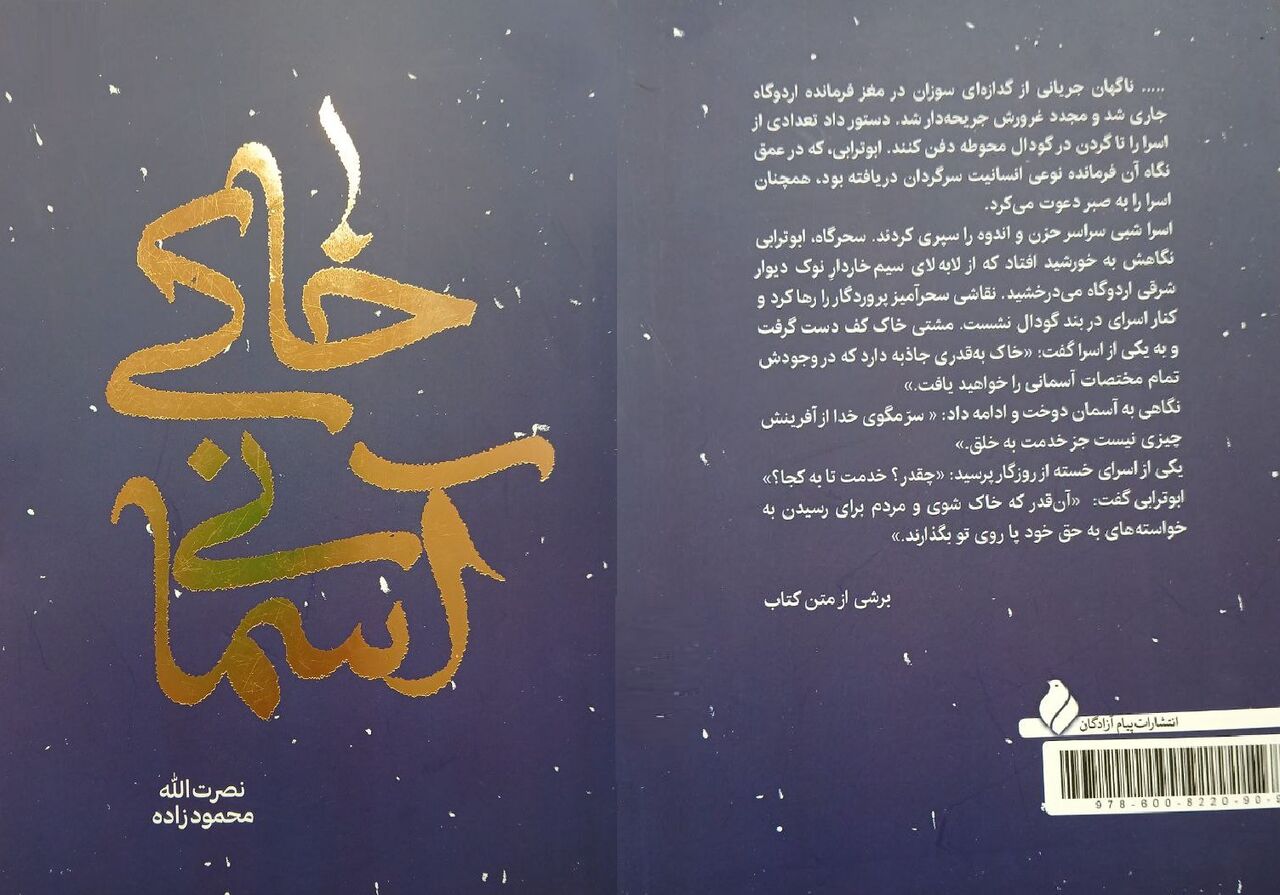 خاکی
آسمانی
نصرت الله
محمودزاده
..... ناگهان جریانی از گدازه‌ای سوزان در مغز فرمانده اردوگاه
جاری شد و مجدد غرورش جریحه‌دار شد. دستور داد تعدادی از
اسرا را تا گردن در گودال محوطه دفن کنند. ابوترابی، که در عمق
نگاه آن فرمانده نوعی انسانیت سرگردان دریافته بود، همچنان
اسرا را به صبر دعوت می‌کرد.
اسرا شبی سراسر حزن و اندوه را سپری کردند. سحرگاه، ابوترابی
نگاهش به خورشید افتاد که از لابه لای سیم خاردار نوک دیوار
شرقی اردوگاه می‌درخشید. نقاشی سحرآمیز پروردگار را رها کرد و
کنار اسرای در بند گودال نشست. مشتی خاک کف دست گرفت
و به یکی از اسرا گفت: «خاک به‌قدری جاذبه دارد که در وجودش
تمام مختصات آسمانی را خواهید یافت.»
نگاهی به آسمان دوخت و ادامه داد: « سرّ مگوی خدا از آفرینش
چیزی نیست جز خدمت به خلق.»
یکی از اسرای خسته از روزگار پرسید: «چقدر؟ خدمت تا به کجا؟»
ابوترابی گفت: «آن‌قدر که خاک شوی و مردم برای رسیدن به
خواسته‌های به حق خود پا روی تو بگذارند.»
برشی از متن کتاب
انتشارات پیام آزادگان
978-600-8220-90-